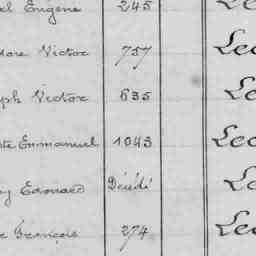 Eugène 245 Le
Victor 757 Lec
Victor 635 Le
Emmanuel 1043 Lec
Edouard Décédé Le
François 274 Lec